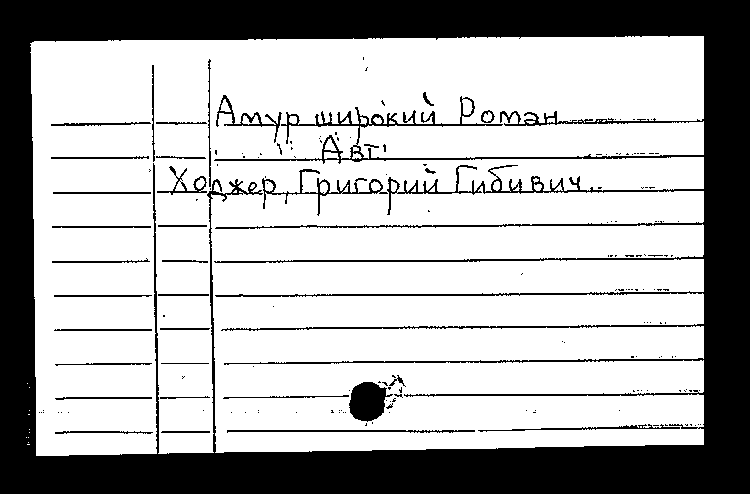 Амур широкий Роман
Авт:
Ходжер, Григорий Гибивич.